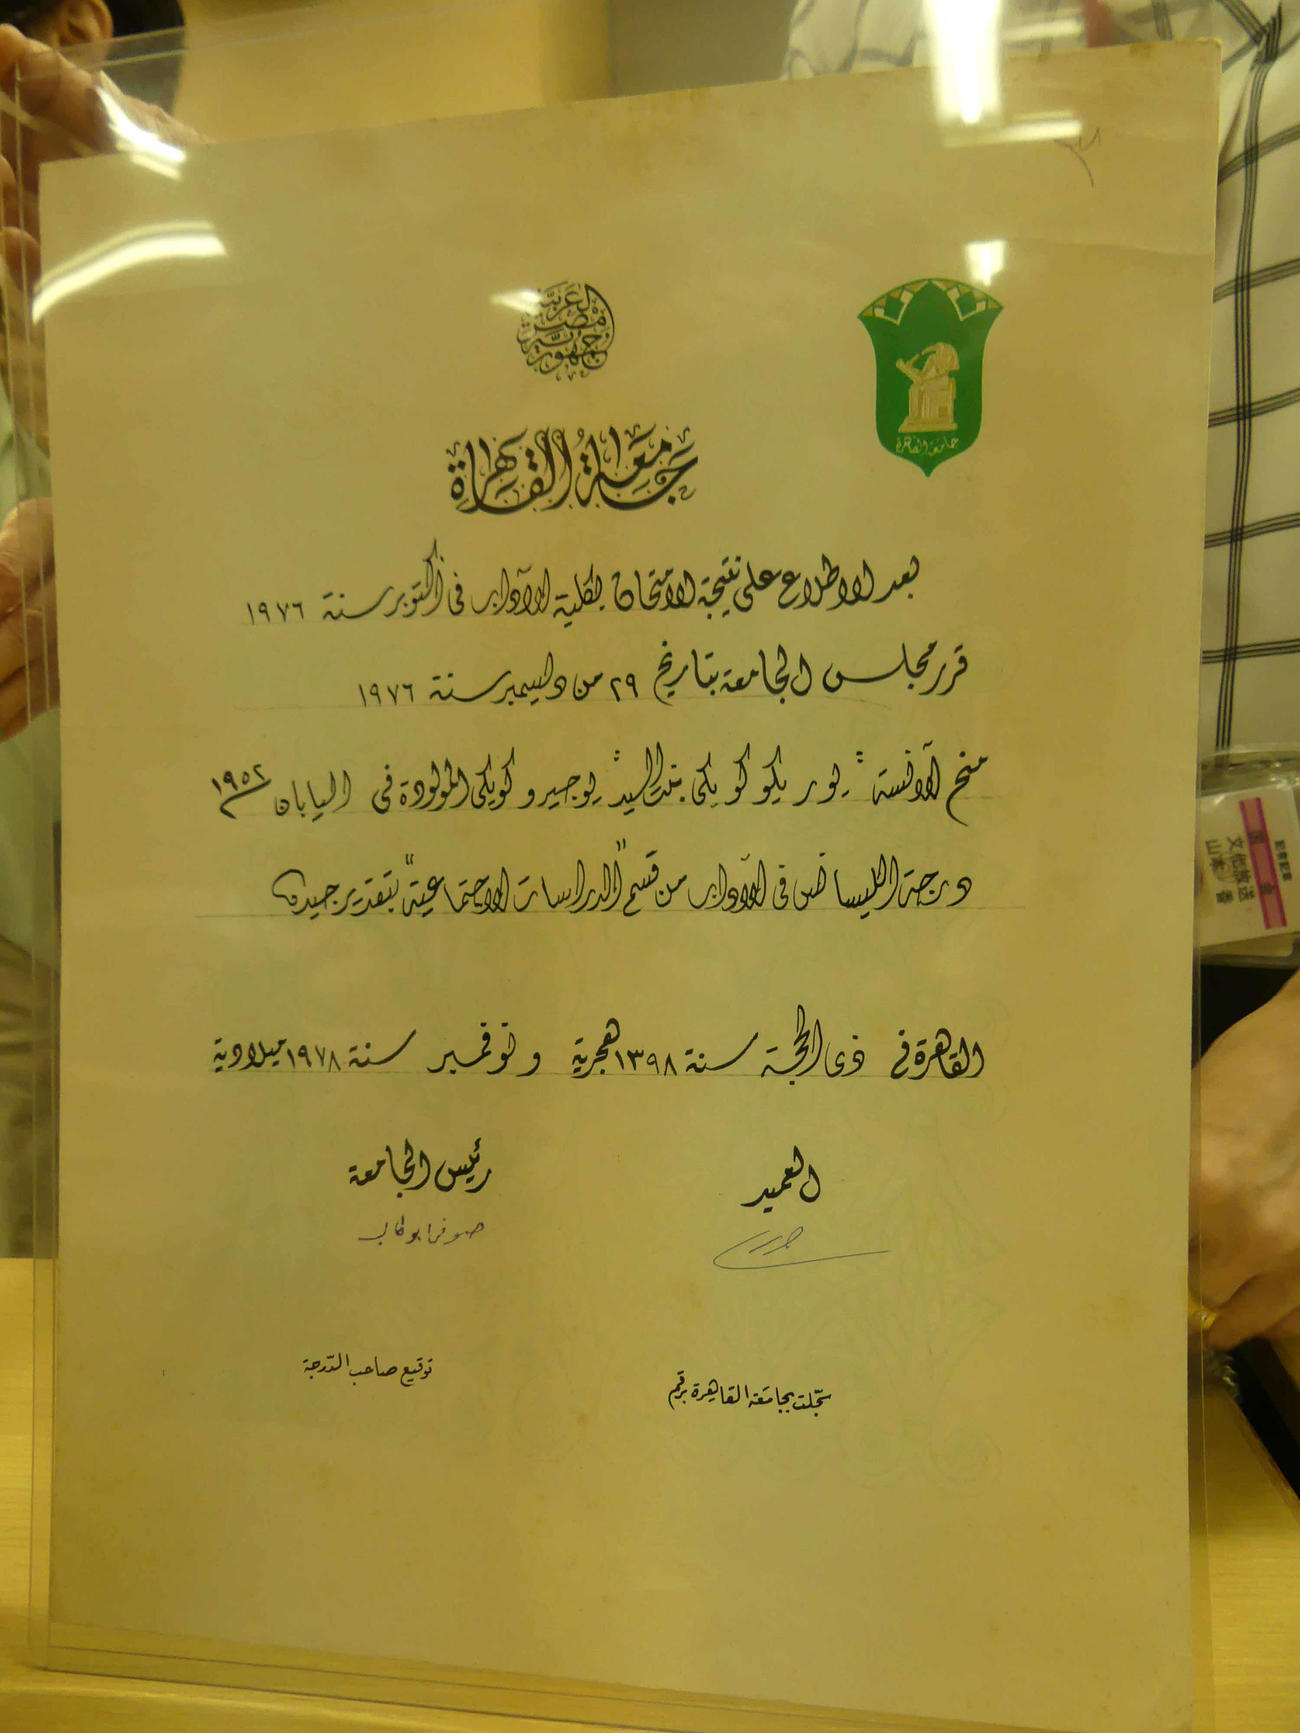 جمهورية مصر العربية
جامعة القاهرة
جامعة القاهرة
بعد الاطلاع على نتيجة الامتحان لكلية الآداب فى أكتوبر سنة ١٩٧٦
قرر مجلس الجامعة بتاريخ ٢٩ من ديسمبر سنة ١٩٧٦
منح الآنسة : يوريكو كويكى بنت السيد : يوجيرو كويكى المولودة فى اليابان ١٩٥٢
درجة الليسانس فى الآداب من قسم "الدراسات الاجتماعية" بتقدير جيد
القاهرة فى ذى الحجة سنة ١٣٩٨ هجرية ونوفمبر سنة ١٩٧٨ ميلادية
العميد
رئيس الجامعة
صوفى أبو طالب
سجلت بجامعة القاهرة برقم
توقيع صاحب الدرجة
文化放送